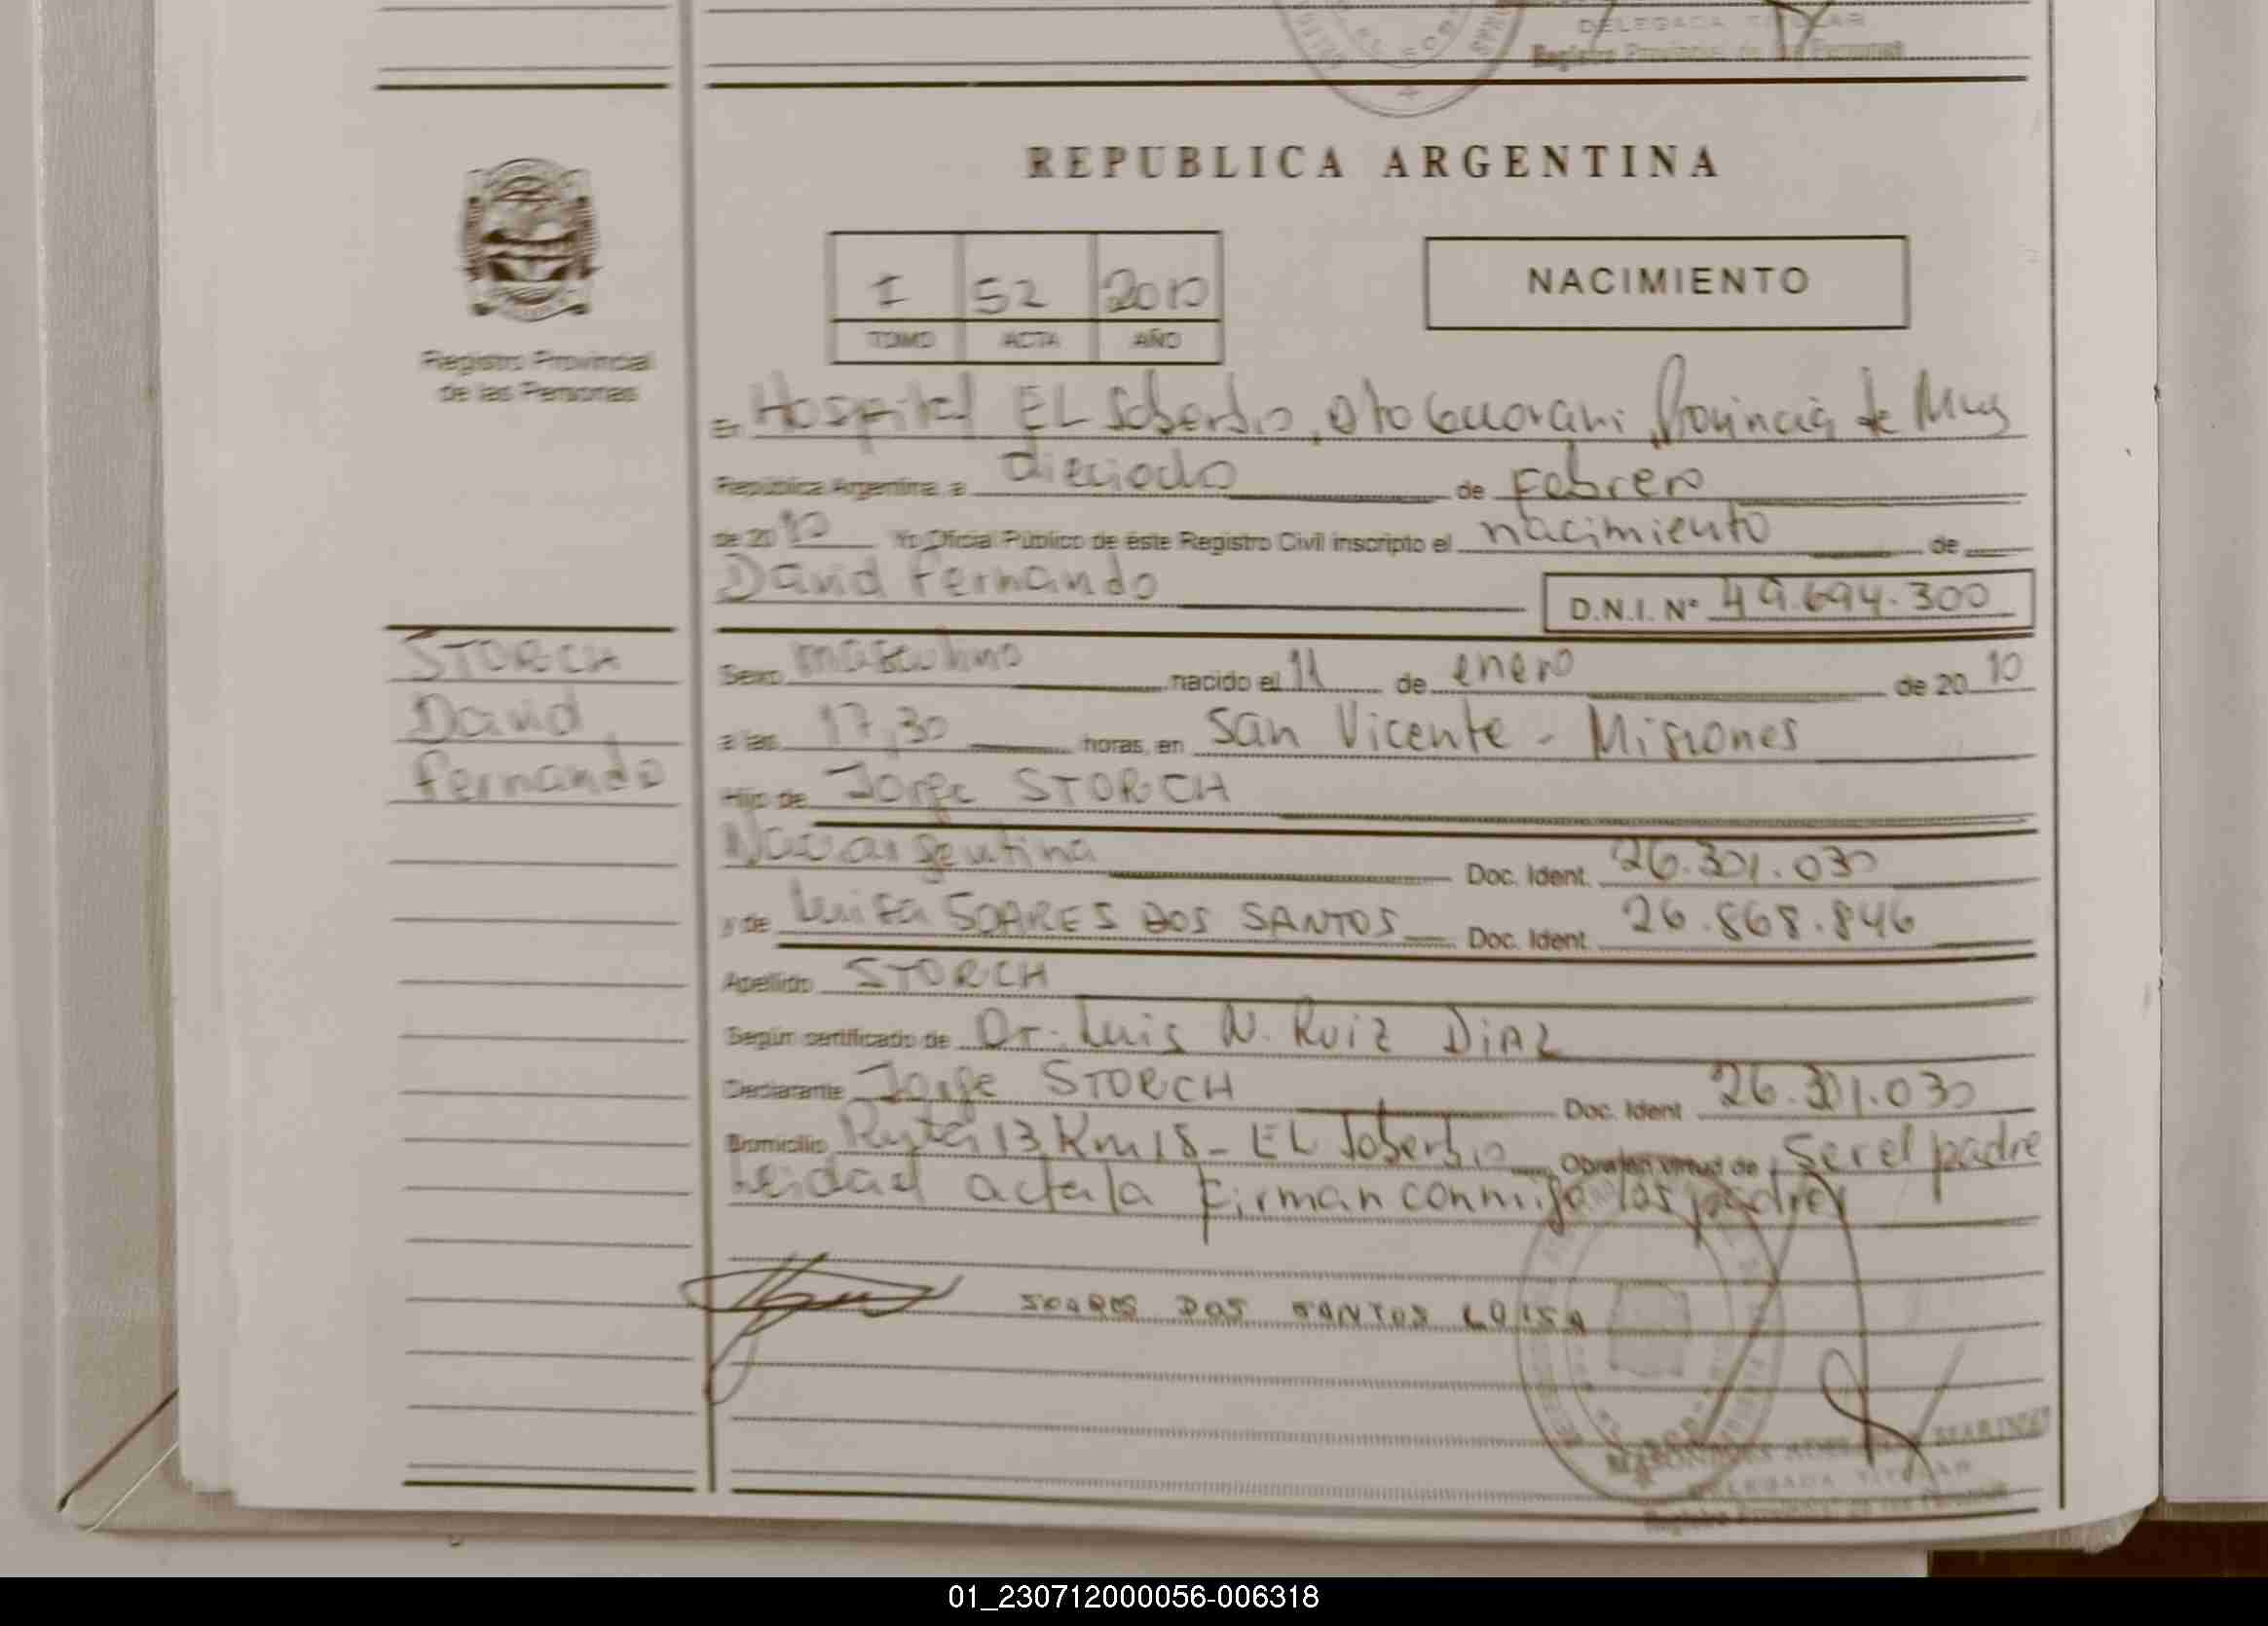 DELEGADA TITULAR
Registro Provincial de las Personas
REPUBLICA ARGENTINA
I 52 2010
TOMO ACTA AÑO
NACIMIENTO
Registro Provincial
de las Personas
En Hospital EL Soberbio, Dto Guarani, Provincia de Mnes
República Argentina, a dieciocho de Febrero
de 2010 Yo Oficial Público de éste Registro Civil inscripto el nacimiento de
David Fernando D.N.I. Nº 49.694.300
STORCH
David
Fernando
Sexo masculino nacido el 11 de enero de 2010
a las 17,30 horas, en San Vicente - Misiones
Hijo de Jorge STORCH
Nac argentina Doc. Ident. 26.301.030
y de Luisa SOARES DOS SANTOS Doc. Ident. 26.868.846
Apellido STORCH
Según certificado de Dr. Luis N. Ruiz DIAZ
Declarante Jorge STORCH Doc. Ident. 26.301.030
Domicilio Ruta 13 Km 18 - EL Soberbio Obra en virtud de Ser el padre
Leida el acta la Firman conmigo los padres
SOARES DOS SANTOS LUISA
DELEGADA TITULAR
Registro Provincial de las Personas
01_230712000056-006318